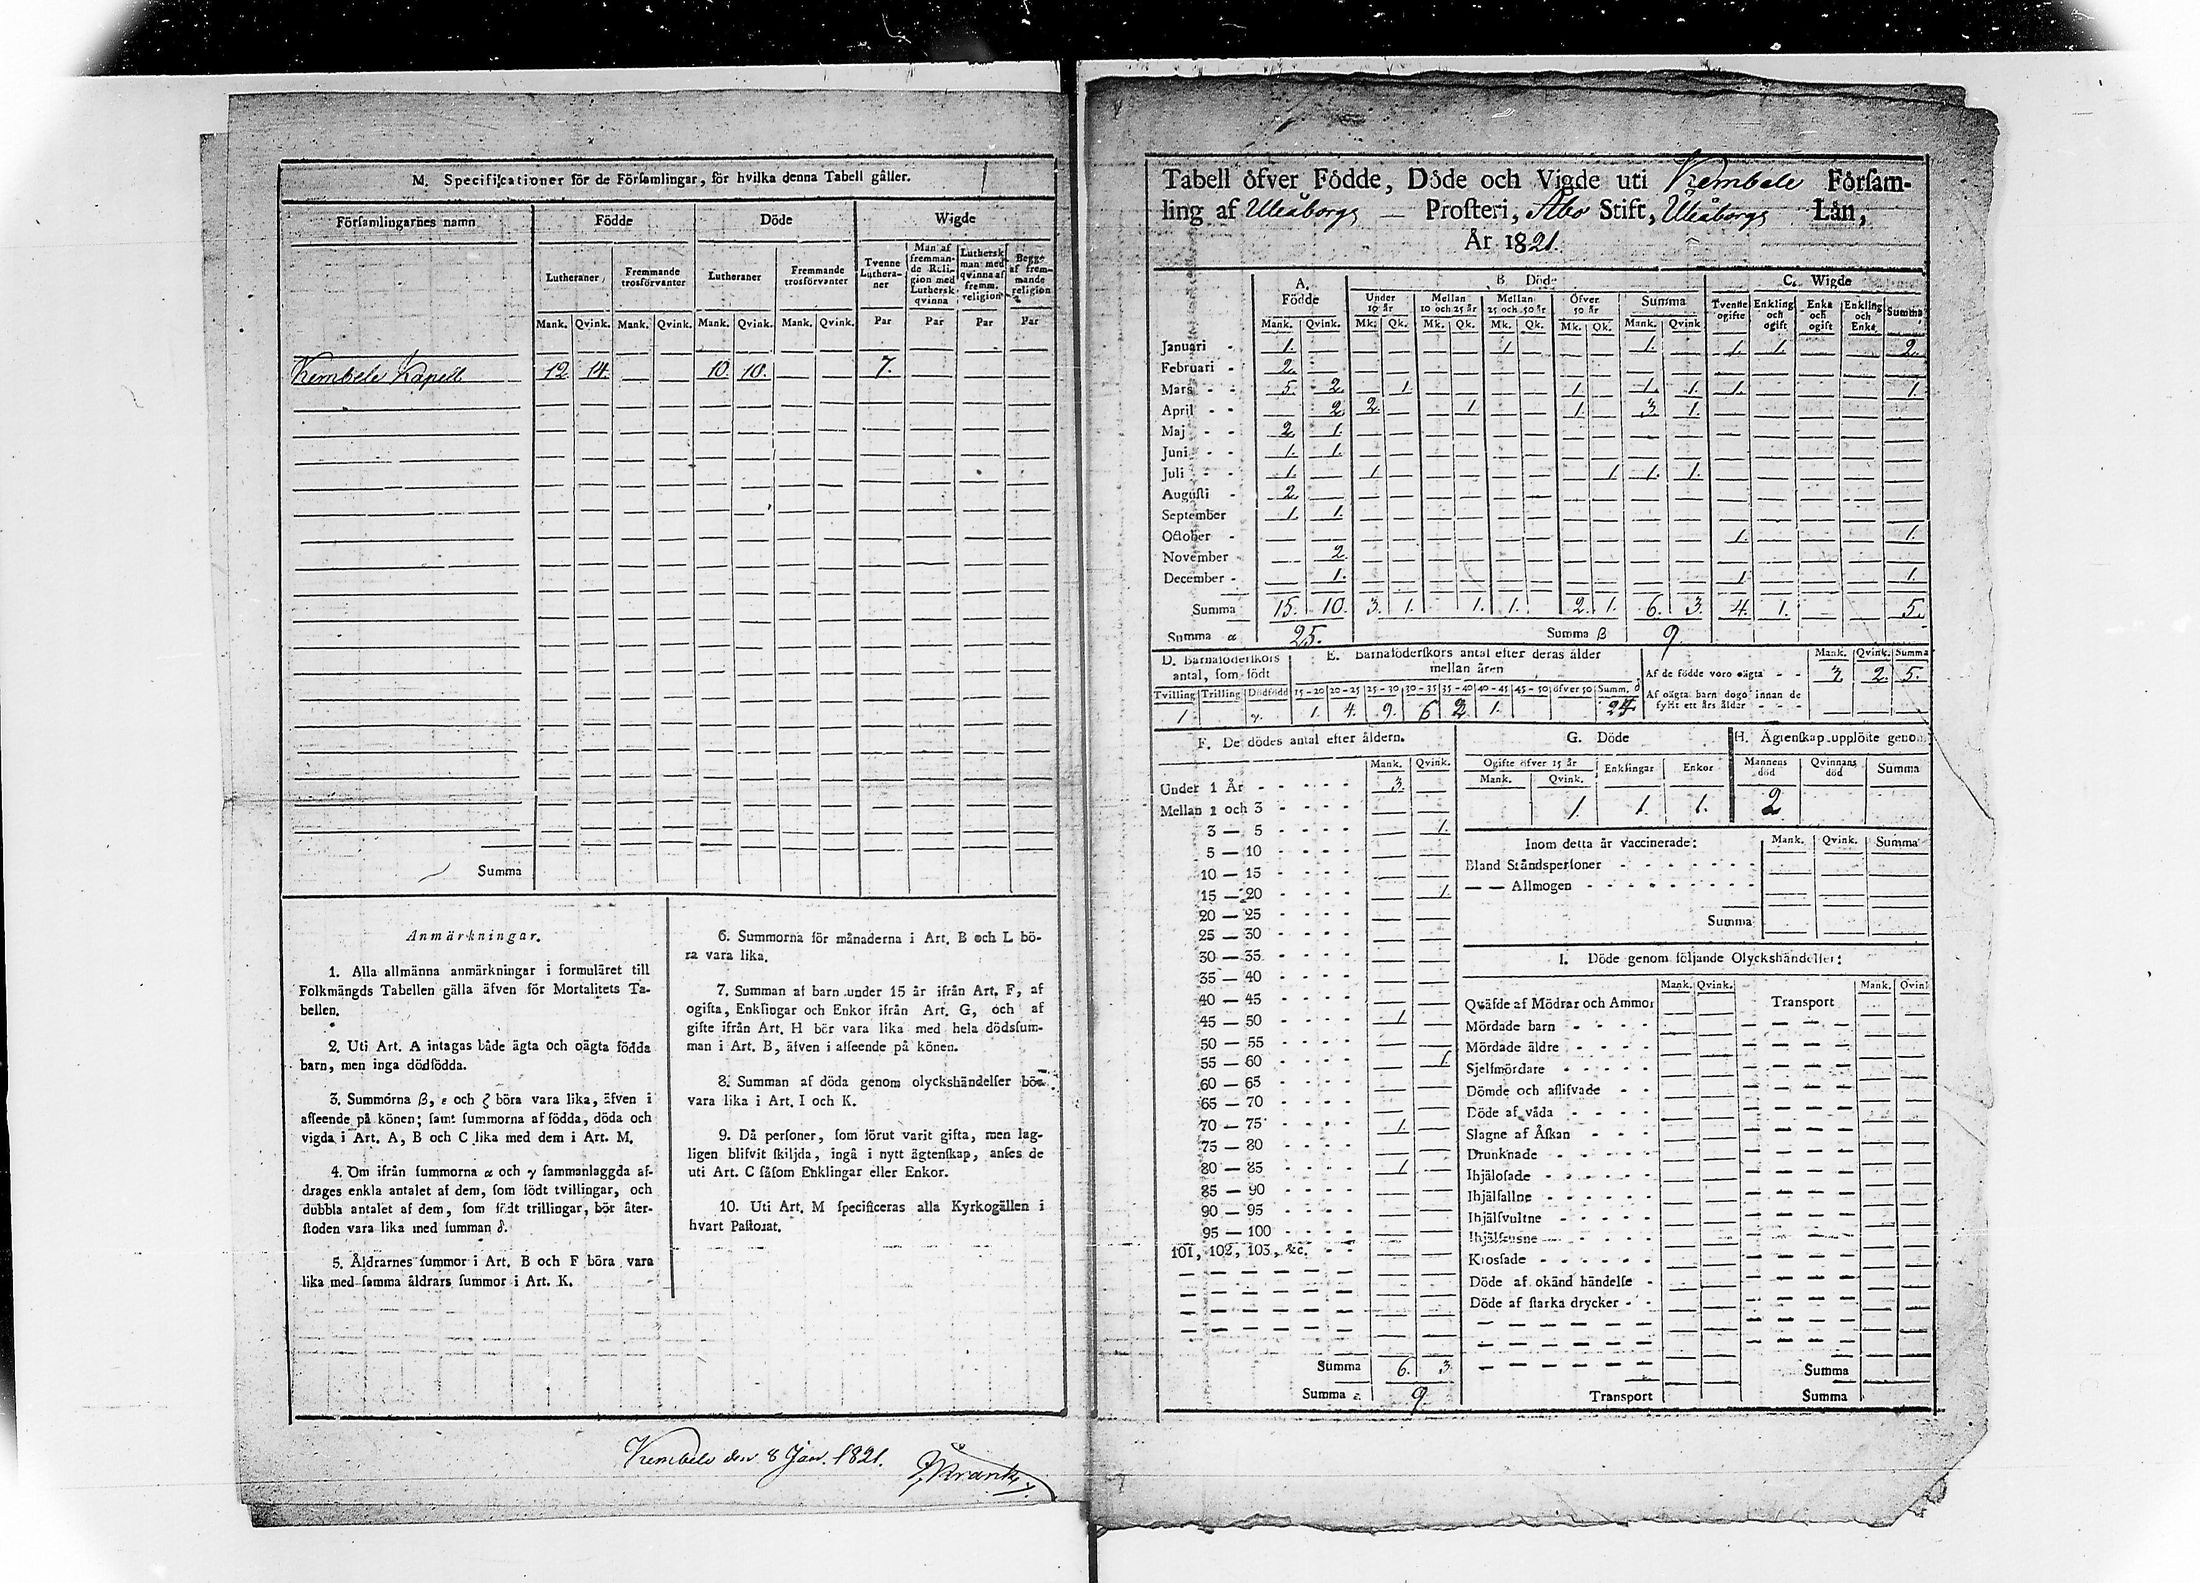 M. Specificationer för de Församlingar, för hvilka denna Tabell gäller.
Församlingarnes namn Födde Döde Wigde
Lutheraner Fremmande trosförvanter Lutheraner Fremmande trosförvanter Tvenne Lutheraner Man af fremmande Religion med Luthersk qvinna Luthersk man med qvinna af fremm. religion Begge af fremmande religion
Mank. Qvink. Mank. Qvink. Mank. Qvink. Mank. Qvink. Par Par Par Par
Kembele Kapell 12 14. 10. 10. 7.
Summa
Anmärkningar.
1. Alla allmänna anmärkningar i formuläret till
Folkmängds Tabellen gälla äfven för Mortalitets Ta-
bellen.
2. Uti Art. A intagas både ägta och oägta födda
barn, men inga dödfödda.
3. Summorna β, ε och ζ böra vara lika, äfven i
afseende på könen; samt summorna af födda, döda och
vigda i Art. A, B och C lika med dem i Art. M.
4. Om ifrån summorna α och γ sammanlaggda af-
drages enkla antalet af dem, som födt tvillingar, och
dubbla antalet af dem, som födt trillingar, bör åter-
stoden vara lika med summan δ.
5. Åldrarnes summor i Art. B och F böra vara
lika med samma åldrars summor i Art. K.
6. Summorna för månaderna i Art. B och L bö-
ra vara lika.
7. Summan af barn under 15 år ifrån Art. F, af
ogifta, Enklingar och Enkor ifrån Art. G, och af
gifte ifrån Art. H bör vara lika med hela dödssum-
man i Art. B, äfven i afseende på könen.
8. Summan af döda genom olyckshändelser böra
vara lika i Art. I och K.
9. Då personer, som förut varit gifta, men lag-
ligen blifvit skiljda, ingå i nytt ägtenskap, anses de
uti Art. C såsom Enklingar eller Enkor.
10. Uti Art. M specificeras alla Kyrkogällen i
hvart Pastorat.
Kembele den 8 Jan. 1821.
Tabell öfver Födde, Döde och Vigde uti Kembele Försam-
ling af Uleåborgs Prosteri, Åbo Stift, Uleåborgs Län,
År 1821.
A. Födde B. Döde C. Wigde
Under 10 år Mellan 10 och 25 år Mellan 25 och 50 år Öfver 50 år Summa Tvenne ogifte Enkling och ogift Enka och ogift Enkling och Enka Summa
Mank. Qvink. Mk. Qk. Mk. Qk. Mk. Qk. Mk. Qk. Mank. Qvink
Januari 1. 1 1. 1. 1. 2.
Februari 2.
Mars 5. 2. 1. 1 1. 1. 1. 1.
April 2. 2. 1 1. 3 1.
Maj 2. 1.
Juni 1. 1.
Juli 1. 1 1 1. 1.
Augusti 2.
September 1. 1.
October 1. 1.
November 2.
December 1. 1 1.
Summa 15. 10. 3. 1. 1. 1. 2. 1. 6. 3. 4. 1. 5.
Summa α 25. Summa β 9
D. Barnaföderskors antal, som födt E. Barnaföderskors antal efter deras ålder mellan åren Mank. Qvink. Summa
Af de födde voro oägta 3 2. 5.
Af oägta barn dogo innan de fyllt ett års ålder
Tvilling Trilling Dödfödd 15-20 20-25 25-30 30-35 35-40 40-45 45-50 öfver 50 Summ. δ
1. 1. 4. 9. 6 1. 24
F. De dödes antal efter åldern.
Mank. Qvink.
Under 1 År 3.
Mellan 1 och 3
3 — 5 1.
5 — 10
10 — 15
15 — 20 1.
20 — 25
25 — 30
30 — 35
35 — 40
40 — 45
45 — 50 1
50 — 55
55 — 60 1.
60 — 65
65 — 70
70 — 75 1.
75 — 80
80 — 85 1
85 — 90
90 — 95
95 — 100
101, 102, 103, &c.
Summa 6. 3.
Summa ε. 9.
G. Döde
Ogifte öfver 15 år Enklingar Enkor
Mank. Qvink.
1. 1. 1.
H. Ägtenskap upplöste genom
Mannens död Qvinnans död Summa
2
Inom detta år vaccinerade: Mank. Qvink. Summa
Bland Ståndspersoner
— — Allmogen
Summa
I. Döde genom följande Olyckshändelser:
Mank. Qvink. Mank. Qvink
Qväfde af Mödrar och Ammor Transport
Mördade barn
Mördade äldre
Sjelfmördare
Dömde och aflifvade
Döde af våda
Slagne af Åskan
Drunknade
Ihjälosade
Ihjälfallne
Ihjälfrusne
Krossade
Döde af okänd händelse
Döde af starka drycker
Summa
Transport Summa